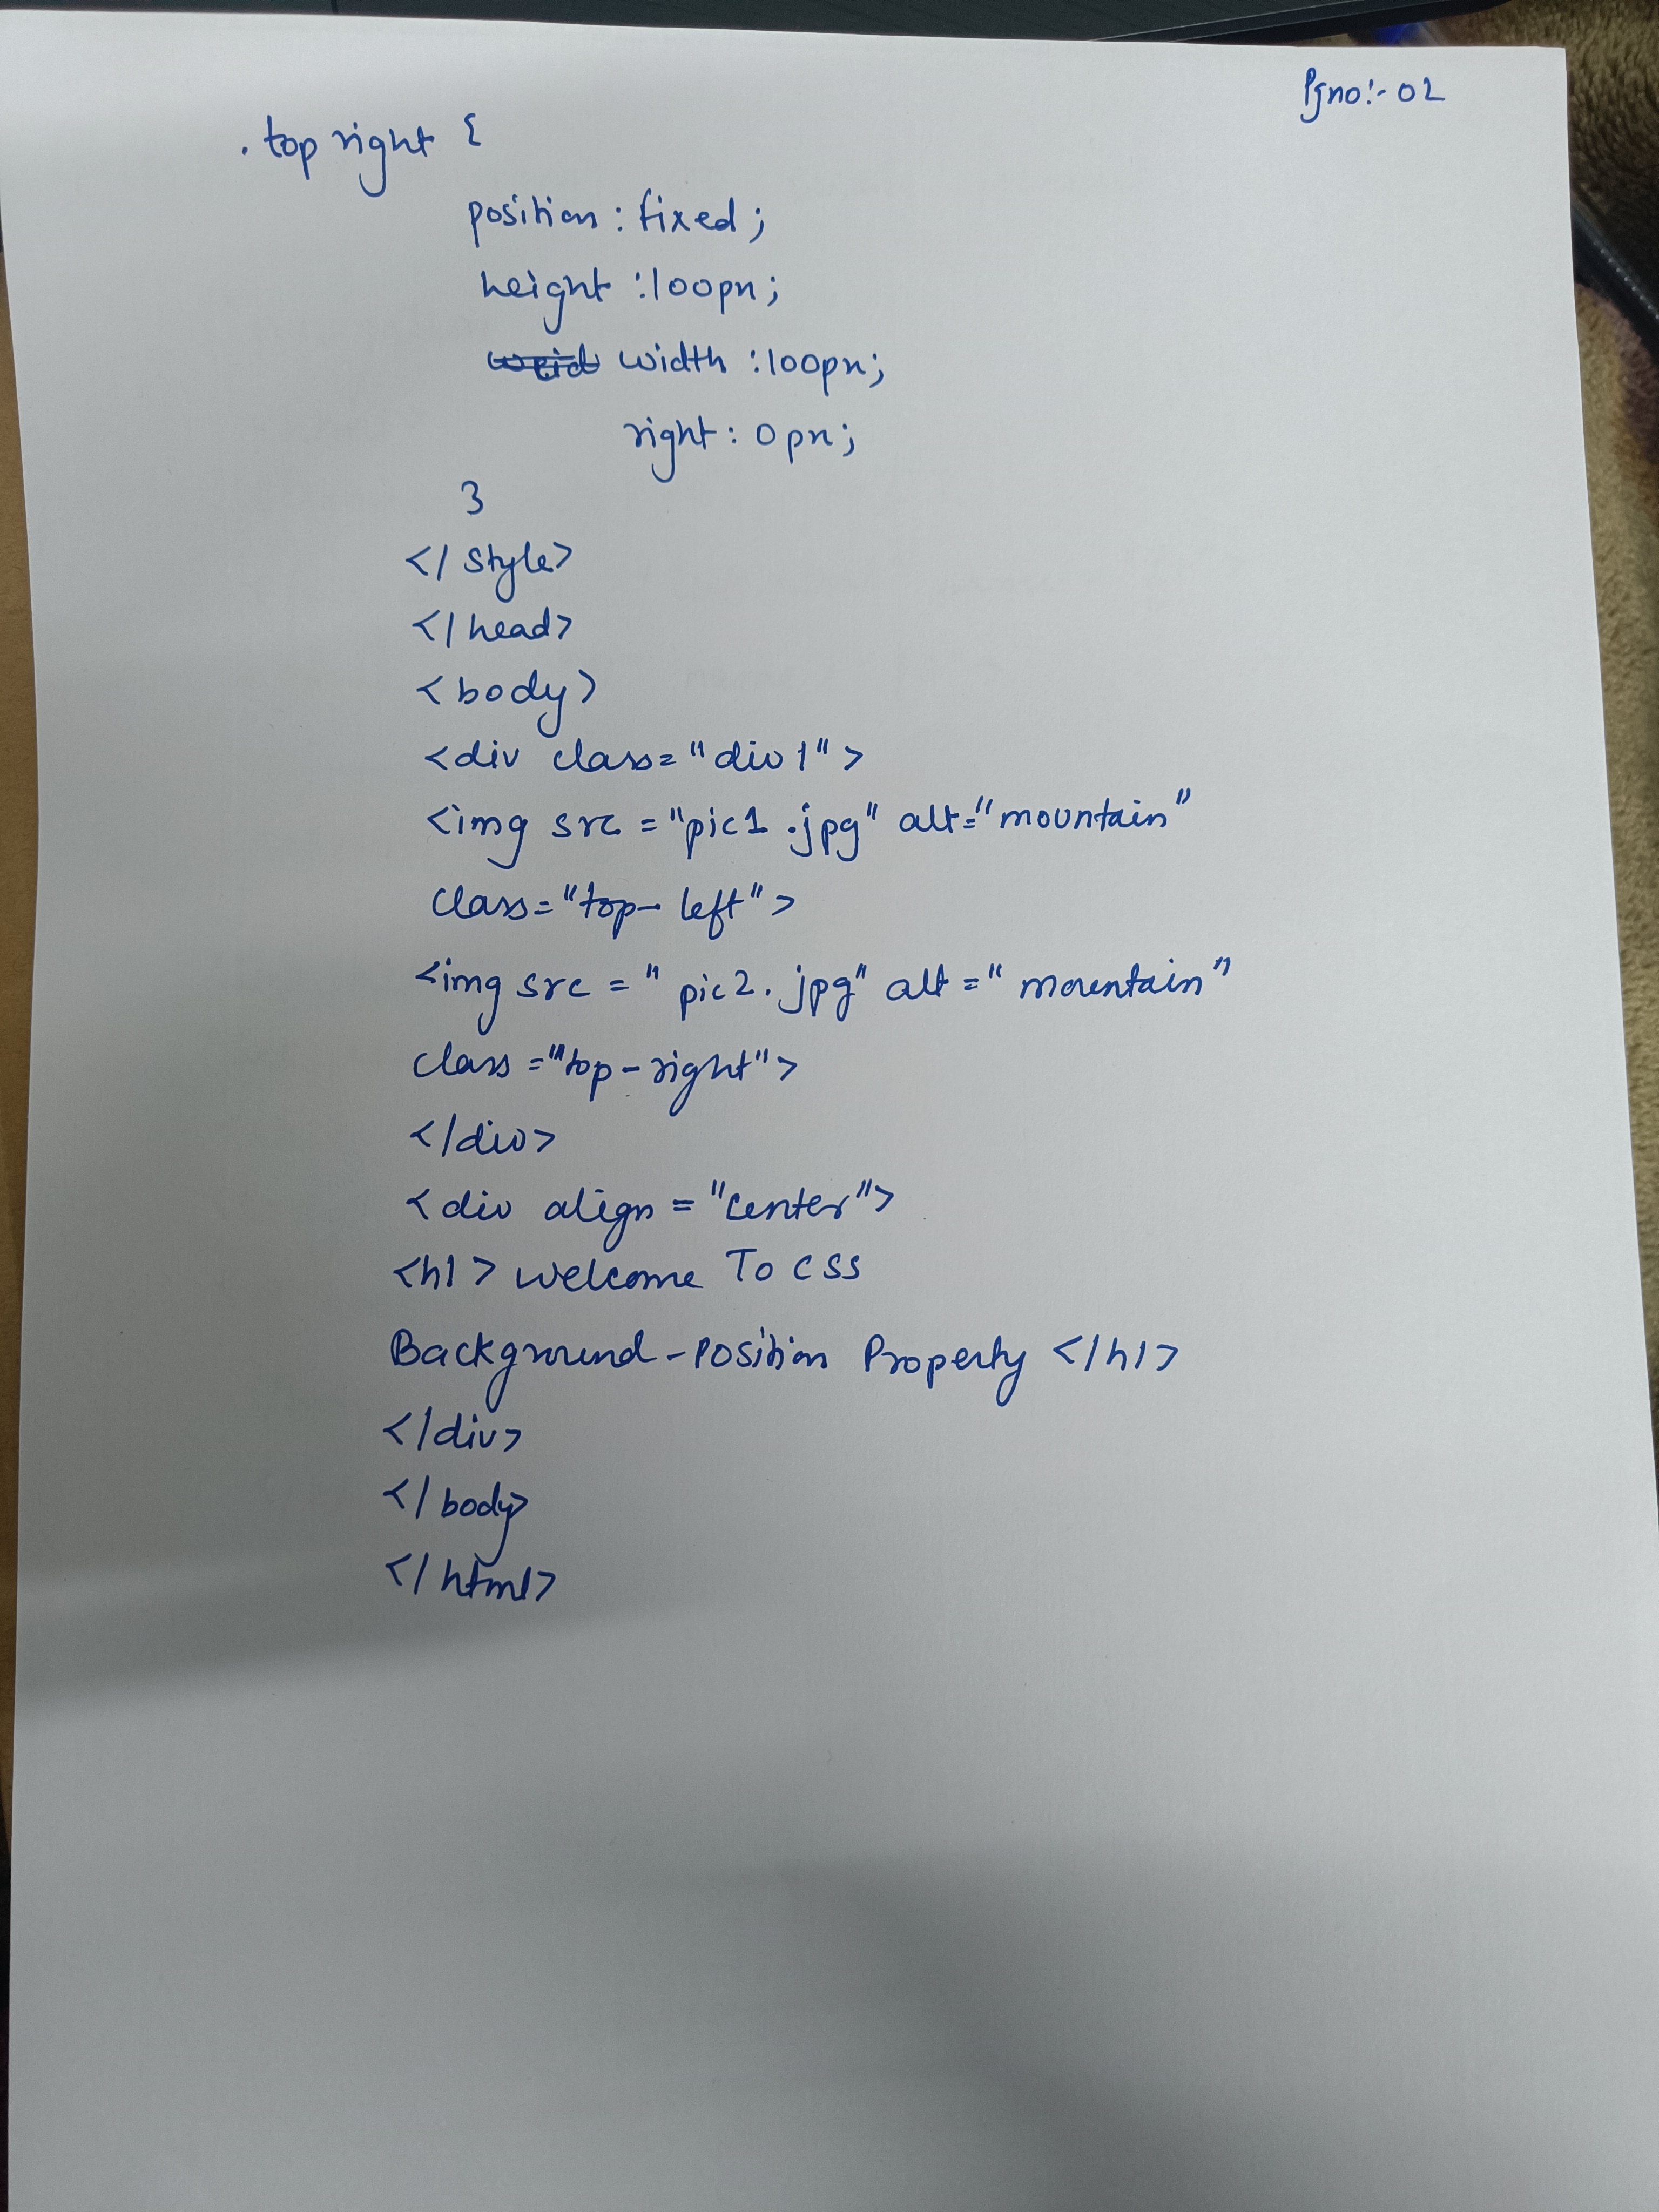 Pgno:- 02
. top right {
position : fixed ;
height : 100px ;
width : 100px ;
right : 0 px ;
}
</ style>
</ head>
< body>
<div class= "div 1" >
<img src = "pic1 .jpg" alt= "mountain"
class= "top- left" >
<img src = " pic2. jpg" alt = " mountain"
class = "top - right" >
</div>
< div align = "center">
<h1 > welcome To CSS
Background - Position Property </h1>
</div>
</ body>
</ html>